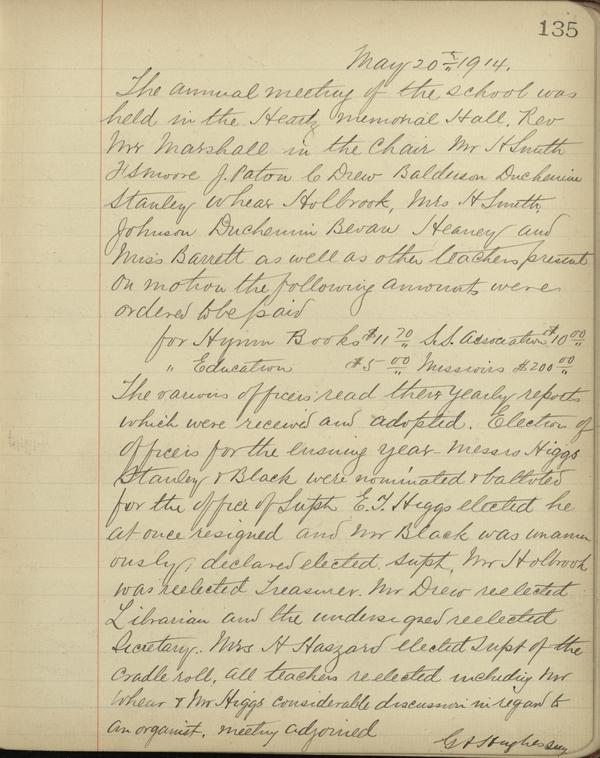 135
May 20th 1914.
The annual meeting of the school was
held in the Heartz memorial Hall. Rev
Mr Marshall in the Chair Mr H Smith
J. Paton C Drew Balderson Duchemin
Stanley Whear Holbrook, Mrs H Smith,
Johnson Duchemin Bevan Heaney and
Miss Barrett as well as other teachers present
On motion the following amounts were
ordered to be paid
for Hymn Books $11 70 S.S. Association $10 00
" Education $5 00 Missions $200 00
The various officers read there yearly reports
which were received and adopted. Election of
Officers for the ensuing year - Messrs Higgs
Stanley & Black were nominated & balloted
for the office of Supt. E.T. Higgs elected he
at once resigned and Mr Black was unanim
ously, declared elected Supt, Mr Holbrook
was reelected Treasurer. Mr Drew reelected
Librarian and the undersigned reelected
Secretary. Mrs H Haszard elected Supt of the
Cradle roll, all teachers reelected including Mr
Whear & Mr Higgs considerable discussion in regard to
an organist. meeting adjourned
Hughes Secy